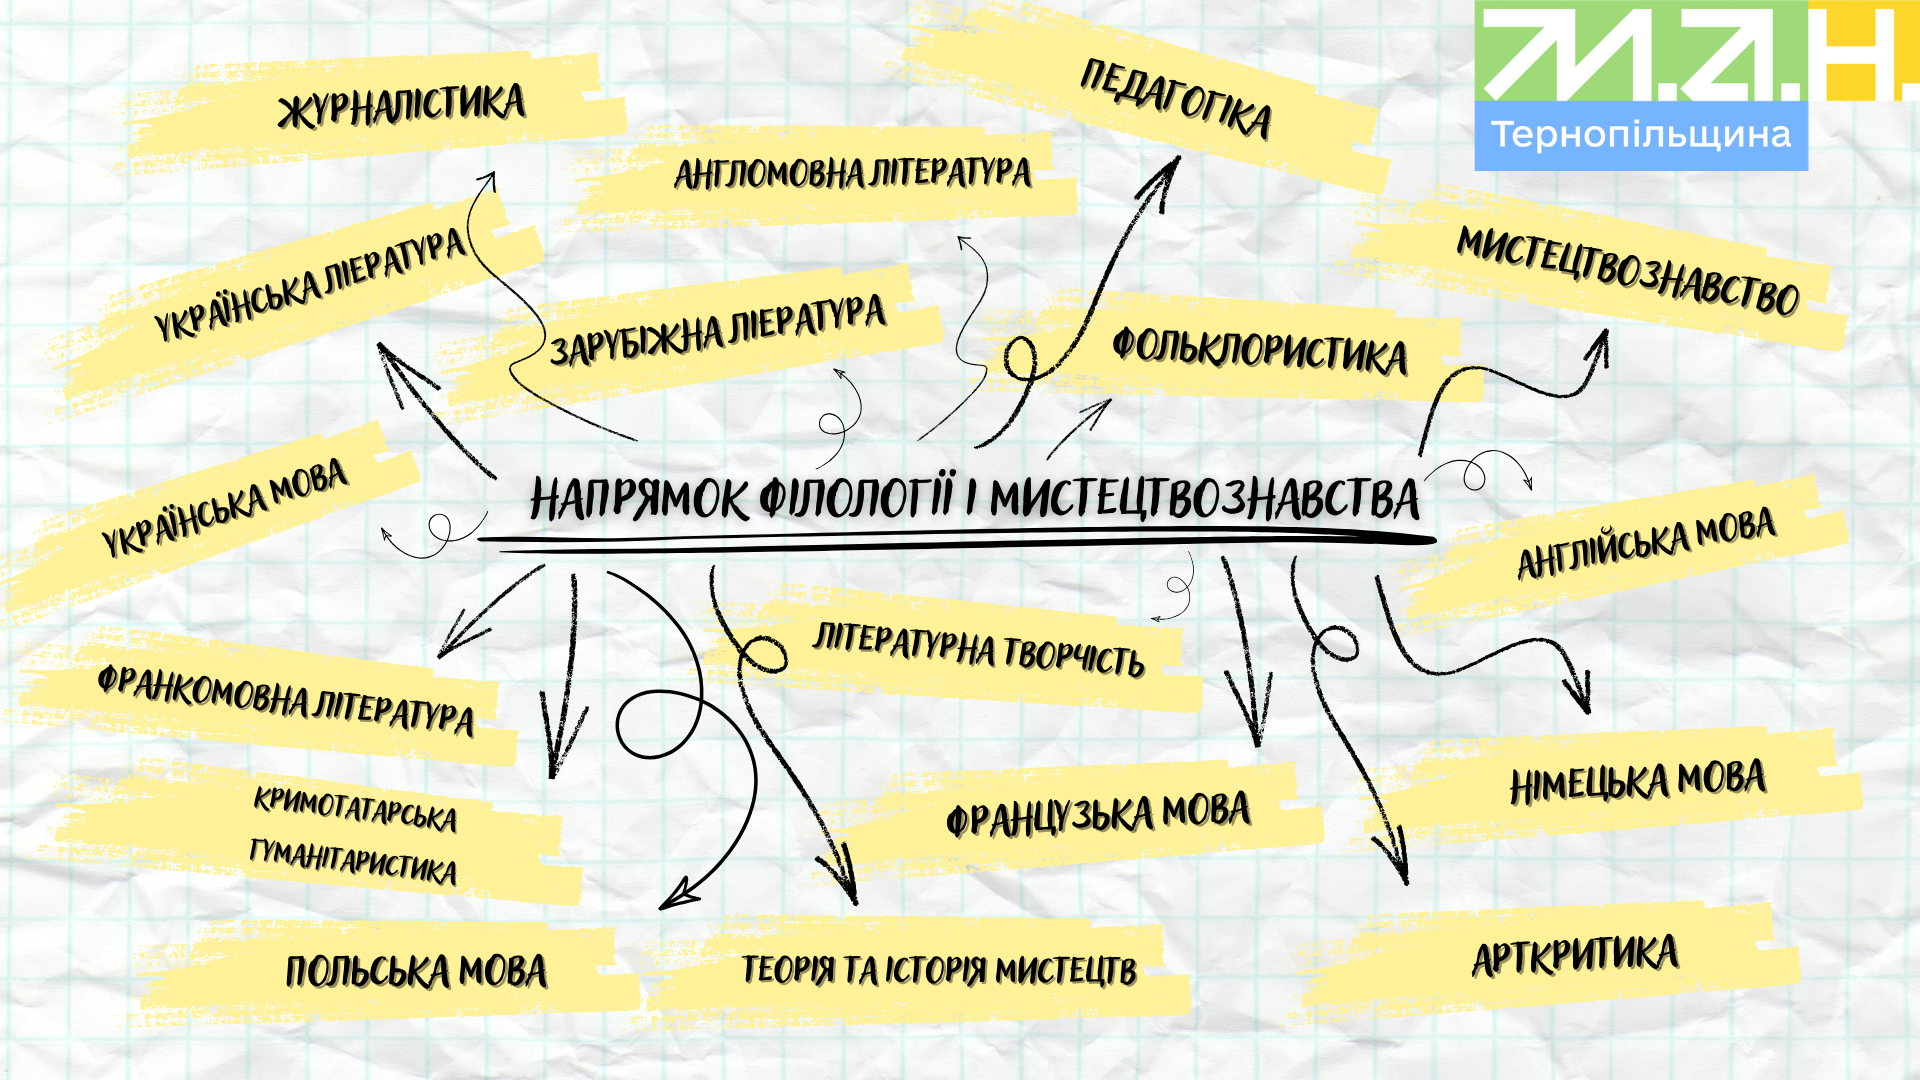 М.А.Н.
Тернопільщина
ЖУРНАЛІСТИКА
ПЕДАГОГІКА
АНГЛОМОВНА ЛІТЕРАТУРА
УКРАЇНСЬКА ЛІЕРАТУРА
МИСТЕЦТВОЗНАВСТВО
ЗАРУБІЖНА ЛІЕРАТУРА
ФОЛЬКЛОРИСТИКА
УКРАЇНСЬКА МОВА
НАПРЯМОК ФІЛОЛОГІЇ І МИСТЕЦТВОЗНАВСТВА
АНГЛІЙСЬКА МОВА
ЛІТЕРАТУРНА ТВОРЧІСТЬ
ФРАНКОМОВНА ЛІТЕРАТУРА
НІМЕЦЬКА МОВА
КРИМОТАТАРСЬКА
ГУМАНІТАРИСТИКА
ФРАНЦУЗЬКА МОВА
ПОЛЬСЬКА МОВА
ТЕОРІЯ ТА ІСТОРІЯ МИСТЕЦТВ
АРТКРИТИКА